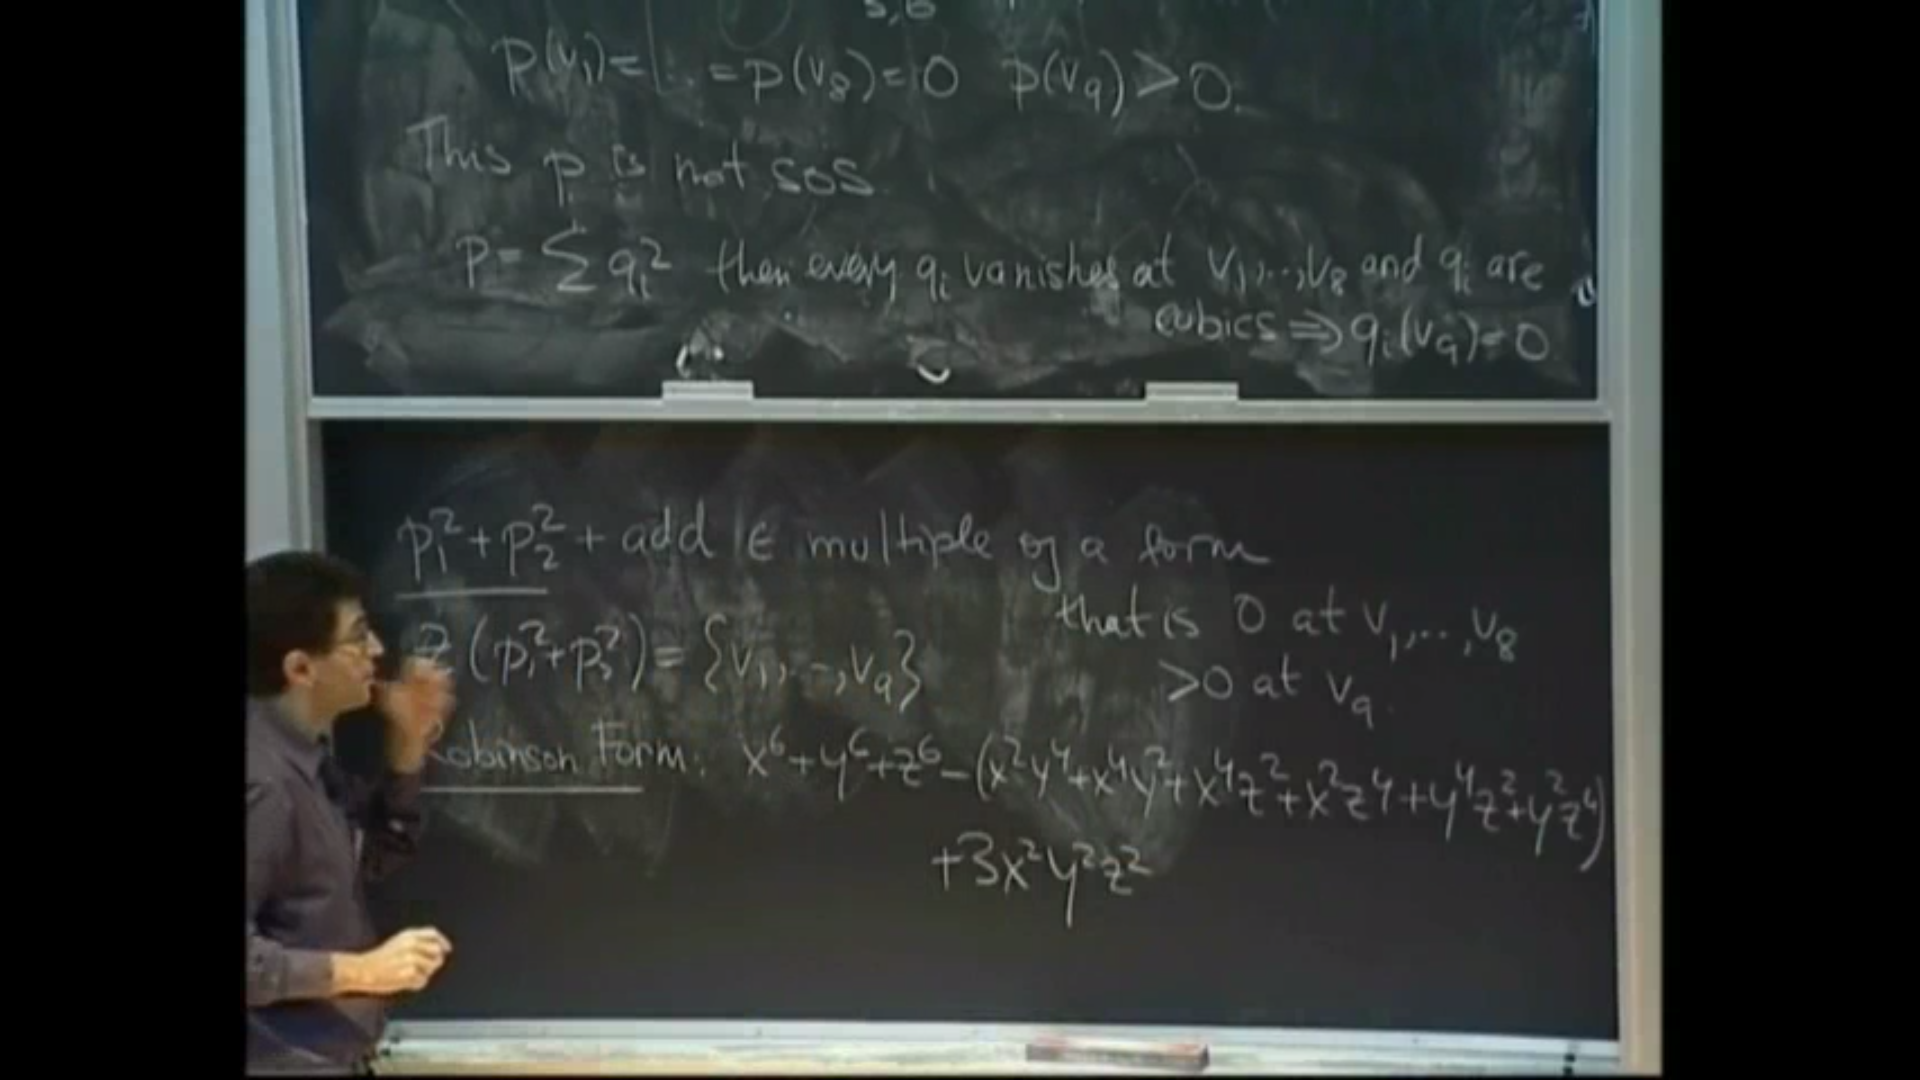 5,6
p(v₁)=...=p(v₈)=0 p(v₉)>0.
This p is not sos
p=∑qᵢ² then every qᵢ vanishes at v₁,...,v₈ and qᵢ are
cubics ⇒ qᵢ(v₉)=0
p₁²+p₂²+add ∈ multiple of a form
that is 0 at v₁,...,v₈
Z(p₁²+p₂²)={v₁,...,v₉}
>0 at v₉.
Robinson Form: x⁶+y⁶+z⁶-(x²y⁴+x⁴y²+x⁴z²+x²z⁴+y⁴z²+y²z⁴)
+3x²y²z²